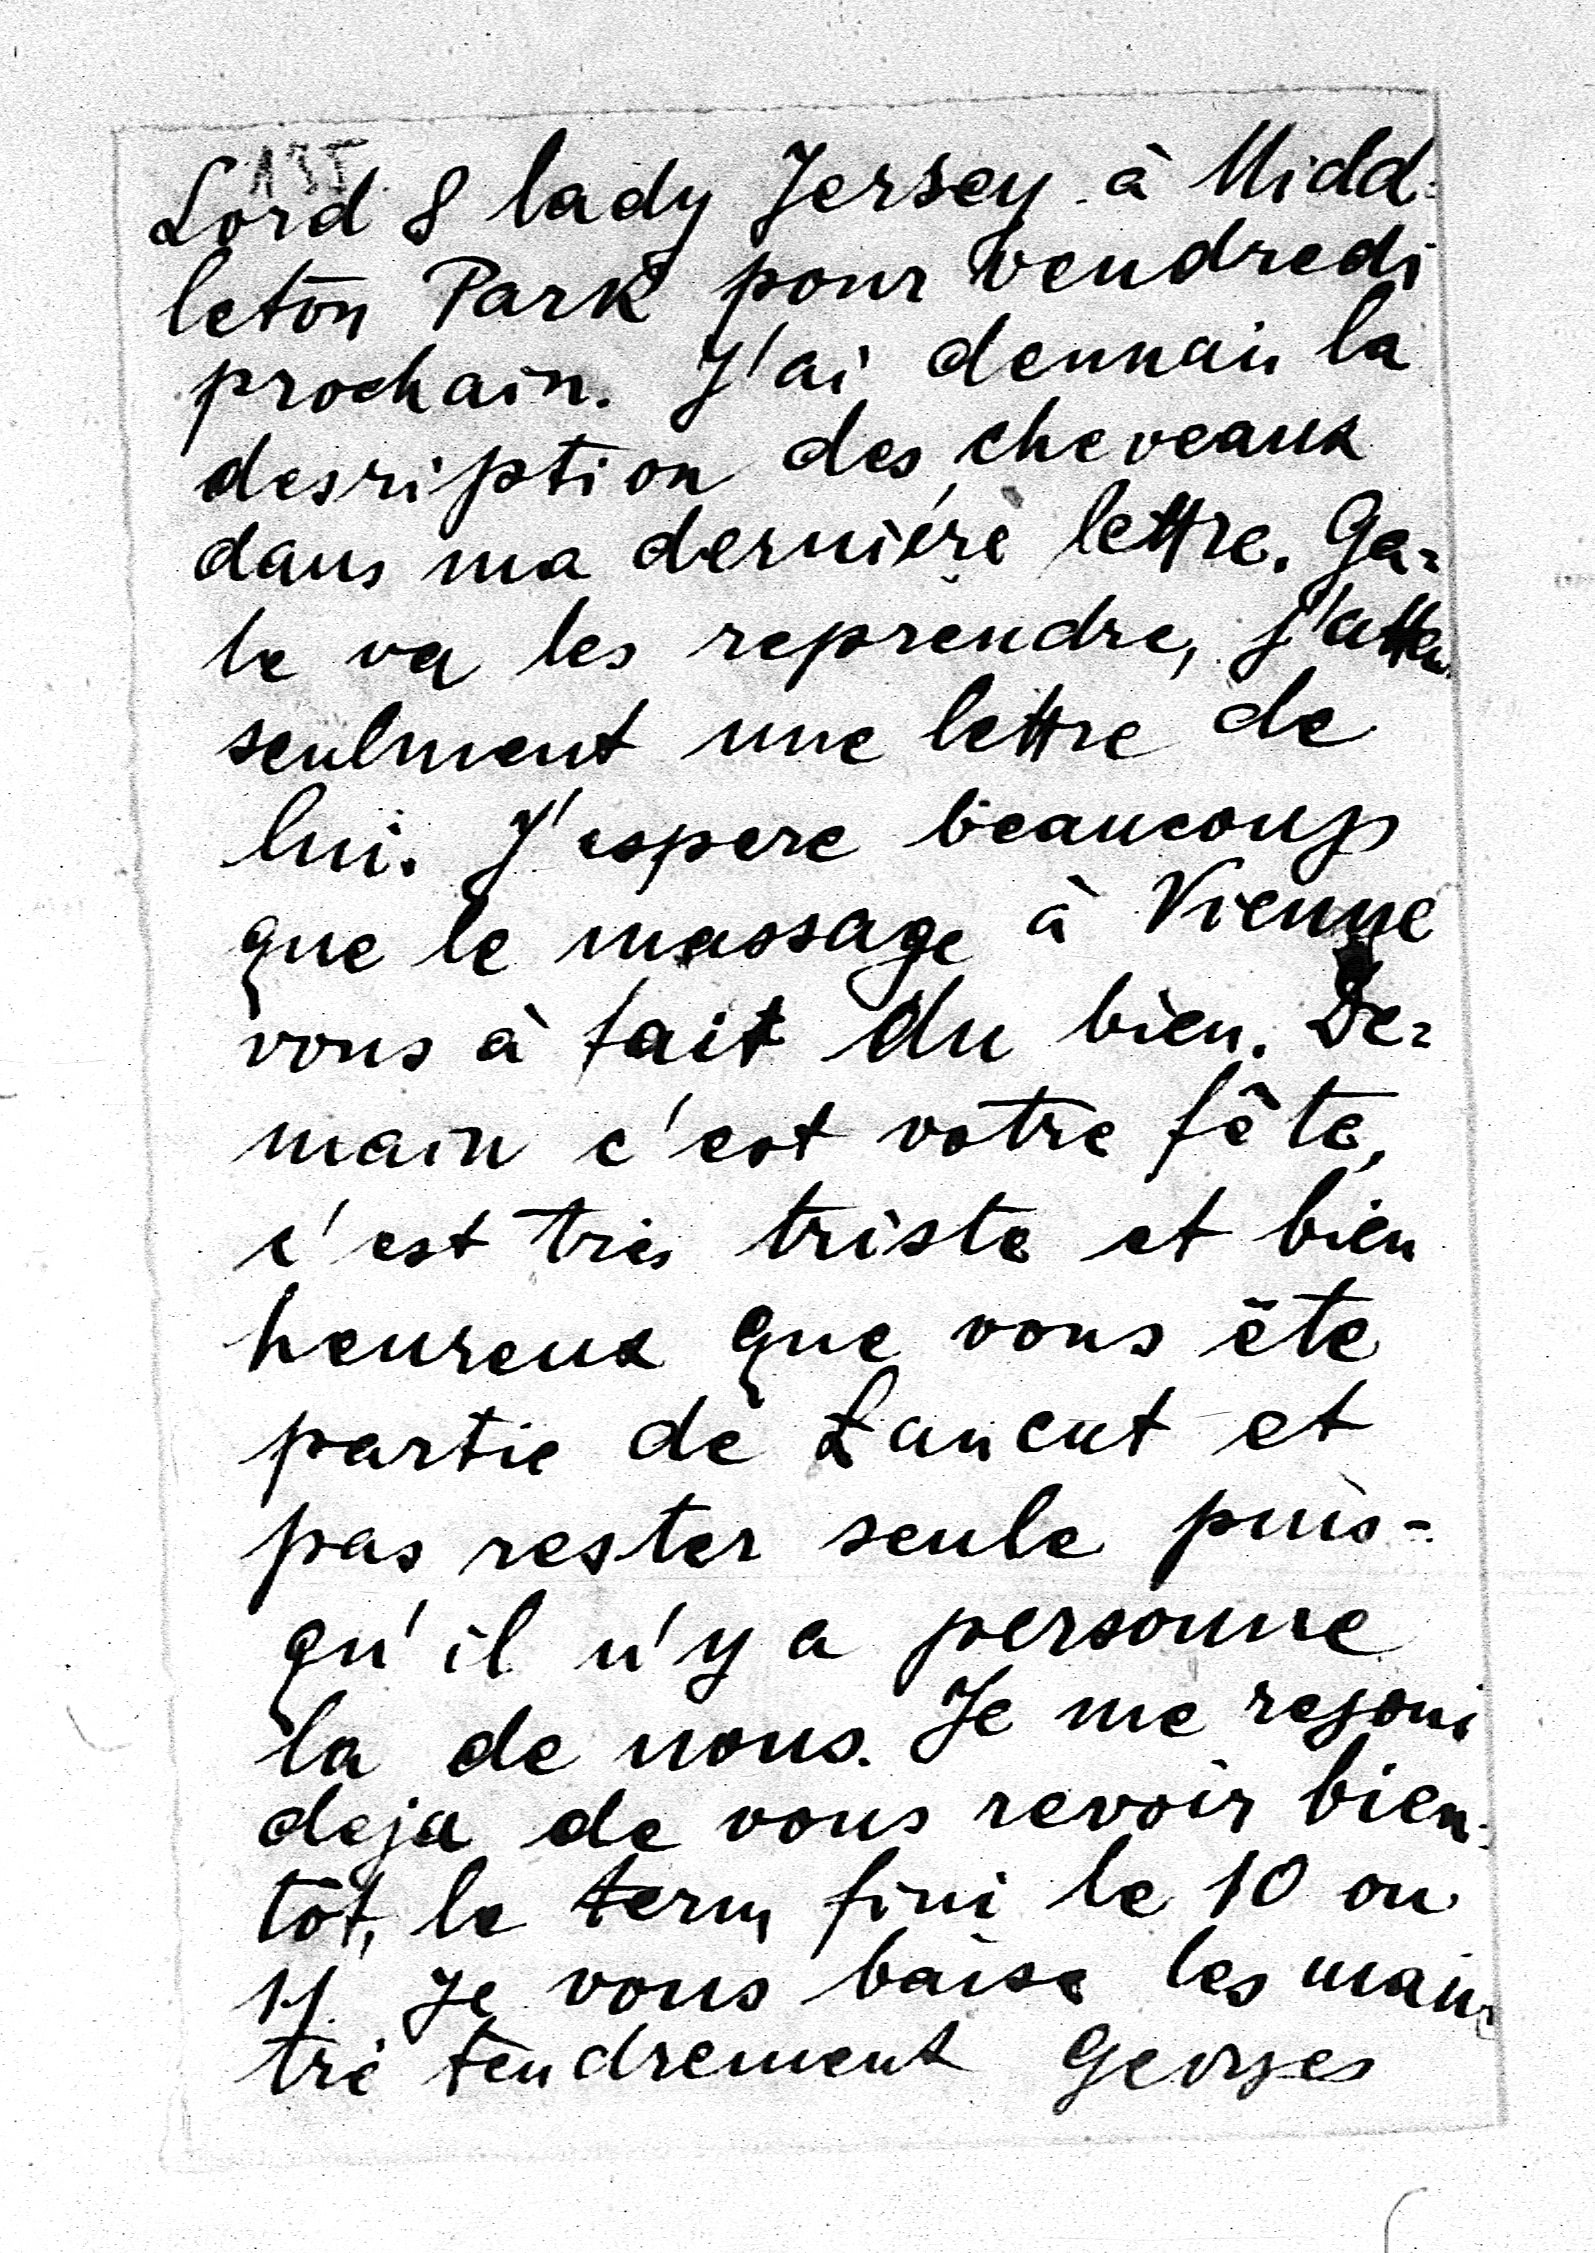 135
Lord & lady Jersey à Midd=
leton Park pour vendredi
prochain. J'ai dennain la
desription des cheveaux
dans ma derniére lettre. Ga=
le va les reprendre, j'atten
seulment une lettre de
lui. J'espere beaucoup
que le massage à Vienne
vous à fait du bien. De=
main c'est votre fête,
c'est très triste et bien
heureux que vous ête
partie de Łancut et
pas rester seule puis-
qu'il n'y a personne
la de nous. Je me rejoui
deja de vous revoir bien=
tôt, le term fini le 10 ou
11. Je vous baise les mains
trè tendrement Georges